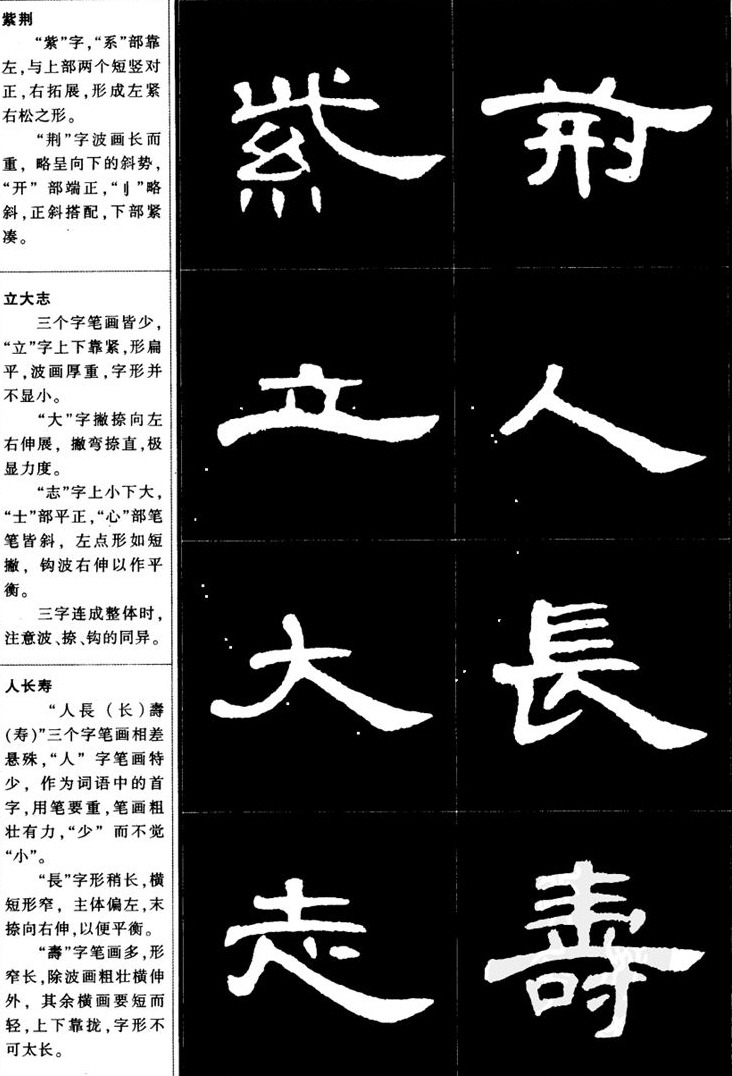 紫荆
“紫”字,“系”部靠
左,与上部两个短竖对
正,右拓展,形成左紧
右松之形。
“荆”字波画长而
重，略呈向下的斜势,
“开”部端正,“刂”略
斜,正斜搭配,下部紧
凑。
立大志
三个字笔画皆少,
“立”字上下靠紧,形扁
平,波画厚重,字形并
不显小。
“大”字撇捺向左
右伸展，撇弯捺直,极
显力度。
“志”字上小下大,
“士”部平正,“心”部笔
笔皆斜，左点形如短
撇，钩波右伸以作平
衡。
三字连成整体时,
注意波、捺、钩的同异。
人长寿
“人長（长）壽
(寿)”三个字笔画相差
悬殊,“人”字笔画特
少，作为词语中的首
字,用笔要重,笔画粗
壮有力,“少”而不觉
“小”。
“長”字形稍长,横
短形窄，主体偏左,末
捺向右伸,以便平衡。
“壽”字笔画多,形
窄长,除波画粗壮横伸
外，其余横画要短而
轻,上下靠拢,字形不
可太长。
紫荆
立人
大長
志壽